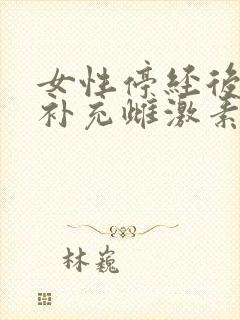 女性停经後
补充雌激素
林巍